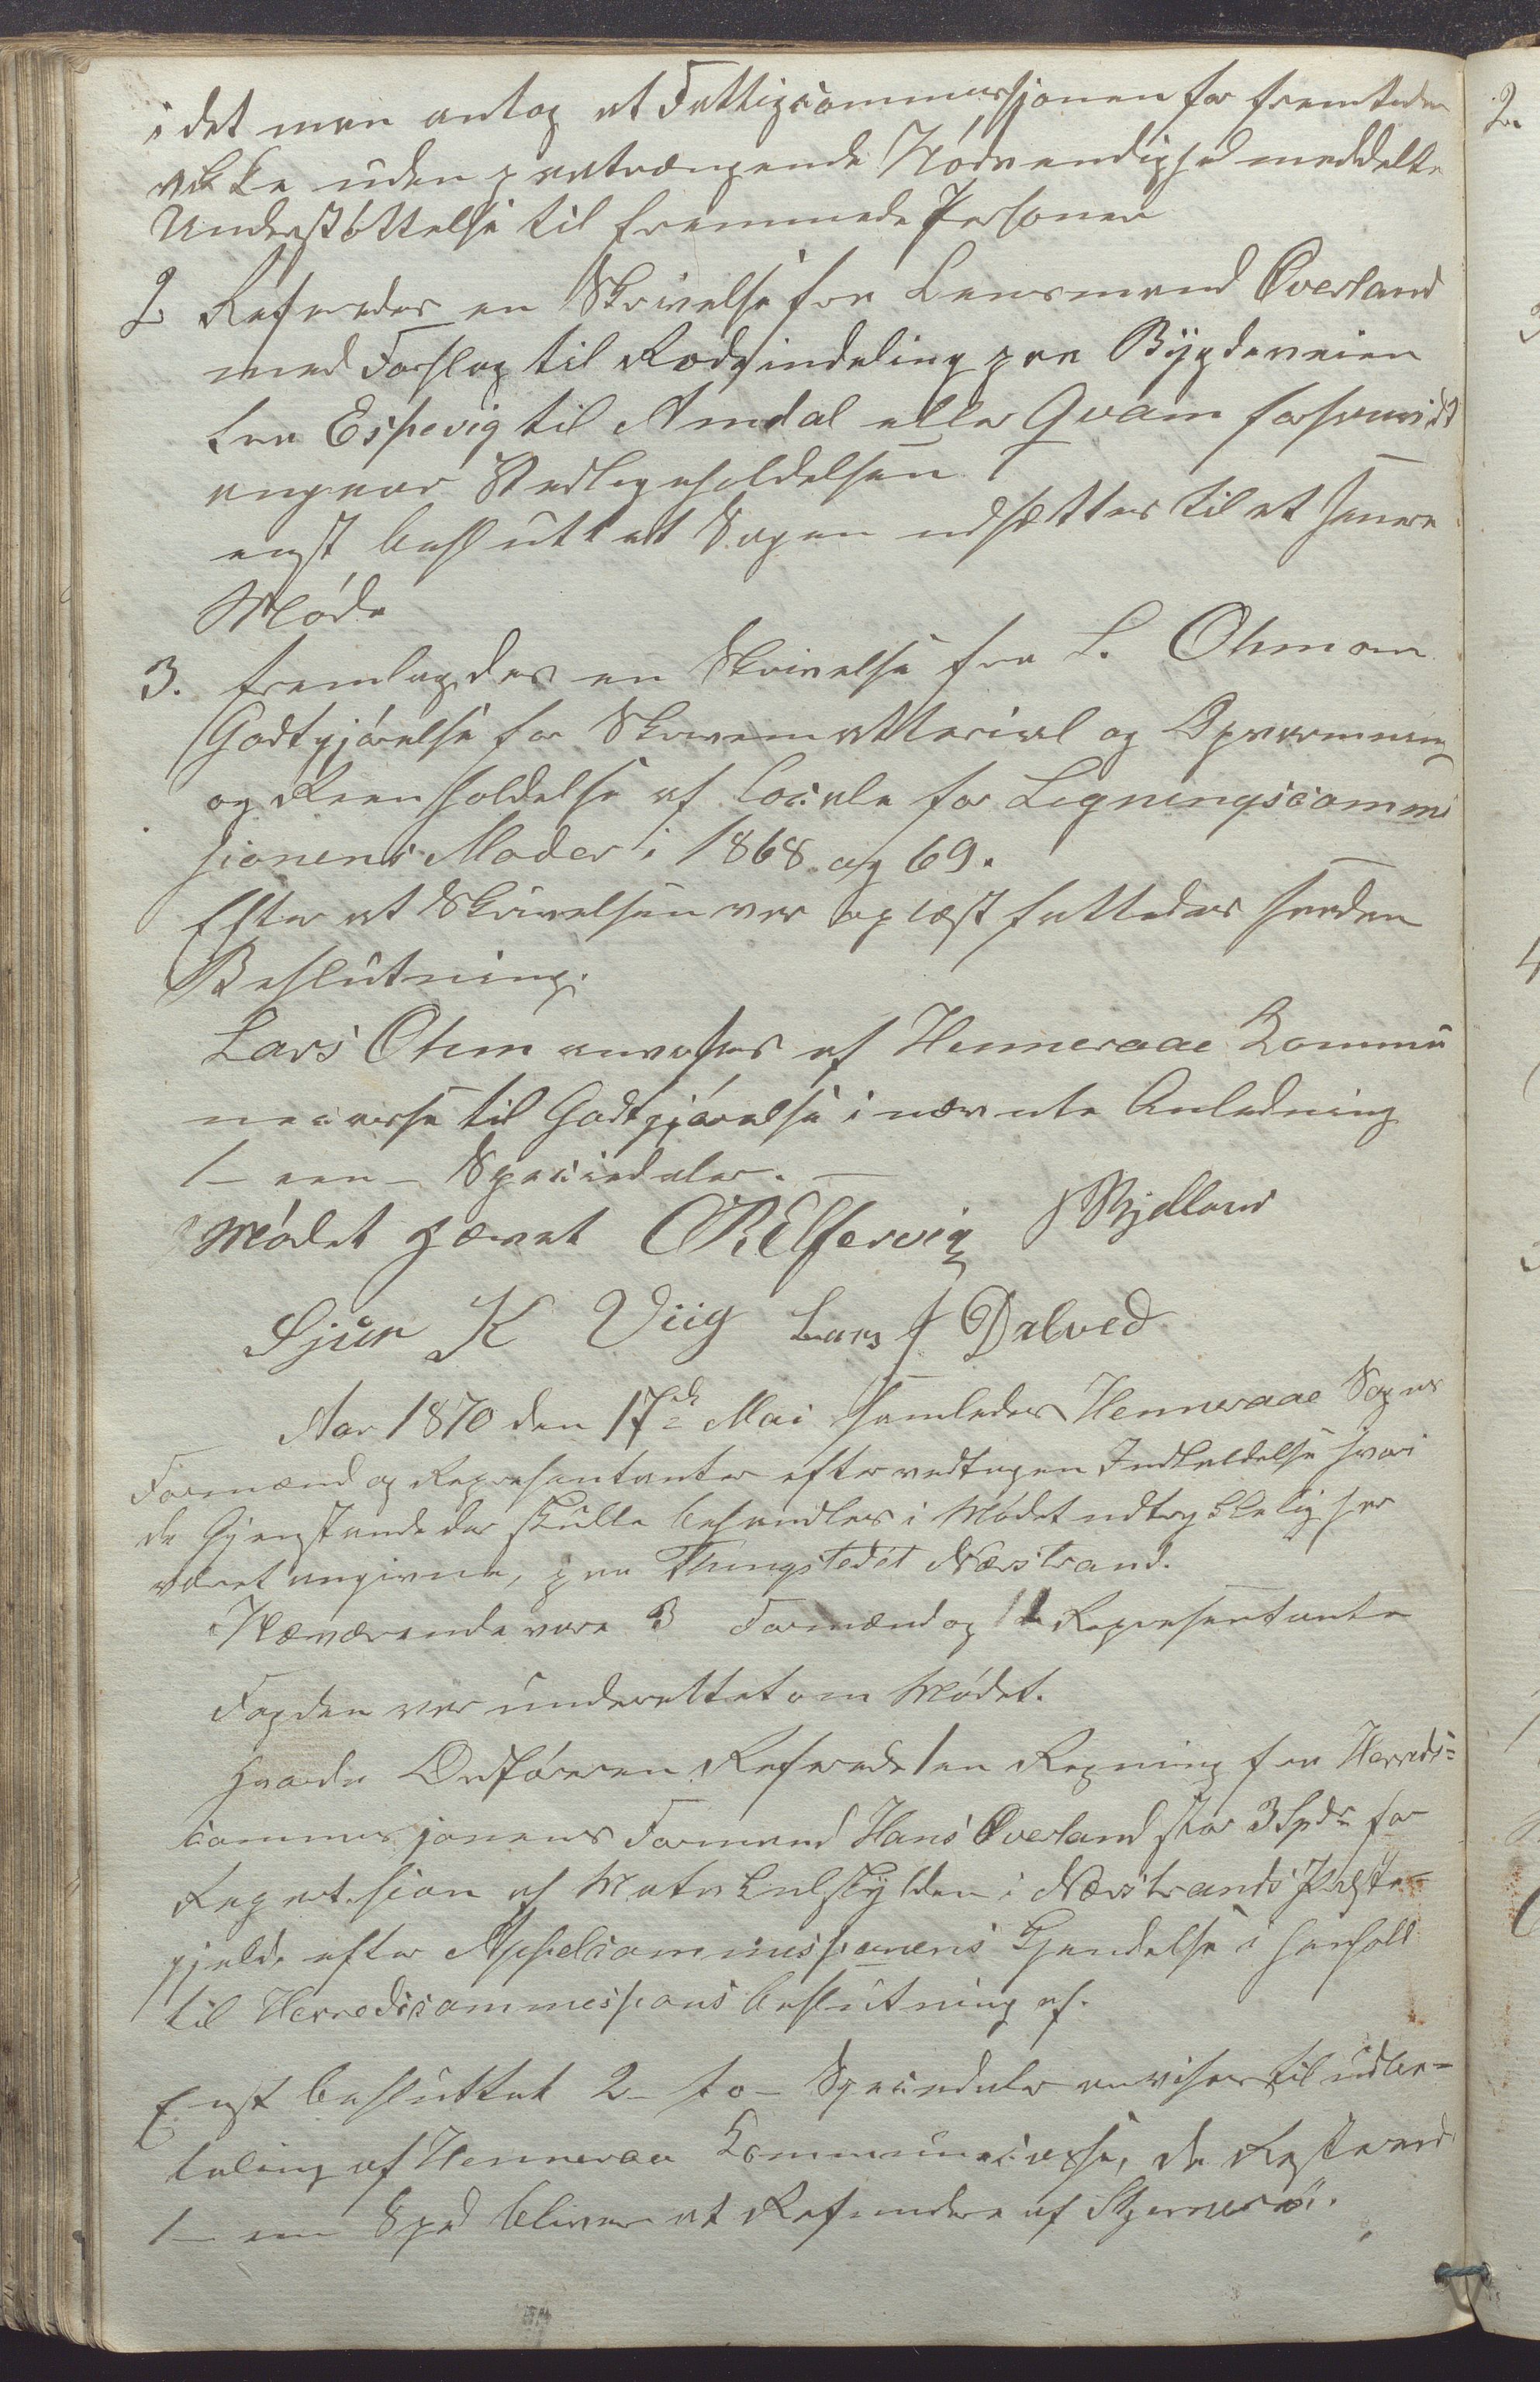 idet man antog at Fattigcommissjonen for fremtiden
ikke uden paatrængende Nödvendighed meddelte
Understöttelse til fremmede Personer
2 Refereredes en Skrivelse fra Lensmand Overland
med Forslag til Rodeinddeling paa Bygdeveien
fra Espevig til Amdal eller Qvam forsaavidt
angaar Vedligeholdelsen
eenst besluttet Sagen udsættes til et senere
Möde
3. fremlagdes en Skrivelse fra L. Ohm om
Godtgjörelse for Skrivematteriel og Opvarmning
og Reenholdelse af Locale for Ligningscommi
sionens Möder i 1868 og 69.
Efter at Skrivelsen var oplæst fattedes saadan
Beslutning.
Lars Ohm anvises af Henneraae Kommu
necasse til Godtgjörelse i nævnte Anledning
1 – een – Speciedaler. –
Mödet hævet O R Elfervig J Bjelland
Sjur K Viig Lars J Dalved
Aar 1870 den 17de Mai samledes Henneraae Sogns
Formænd og Repræsentanter efter modtagen Indkaldelse hvori
de Gjenstande der skulle behandles i Mödet udtrykkelig har
været angivne, paa Thingstedet Nærstrand.
Nærværende vare 3 Formænd og 11 Repræsentanter
Fogden var underrettet om Mödet.
hvorda Ordföreren Refererede 1 en Regning fra Herreds=
commissjonens Formand Hans Overland stor 3 Spdr for
Repartision af Matrikulskylden i Nærstrands Præste=
gjeld, efter Appelcommissionens Kjendelse i henhold
til Herredscommissions beslutning af.
Eenst besluttet 2 – to – Speciedaler anvises til udbe=
taling af Henneraa Kommunecasse, de Resterend
1 – een Spd bliver at Refundere af Stjernerö.